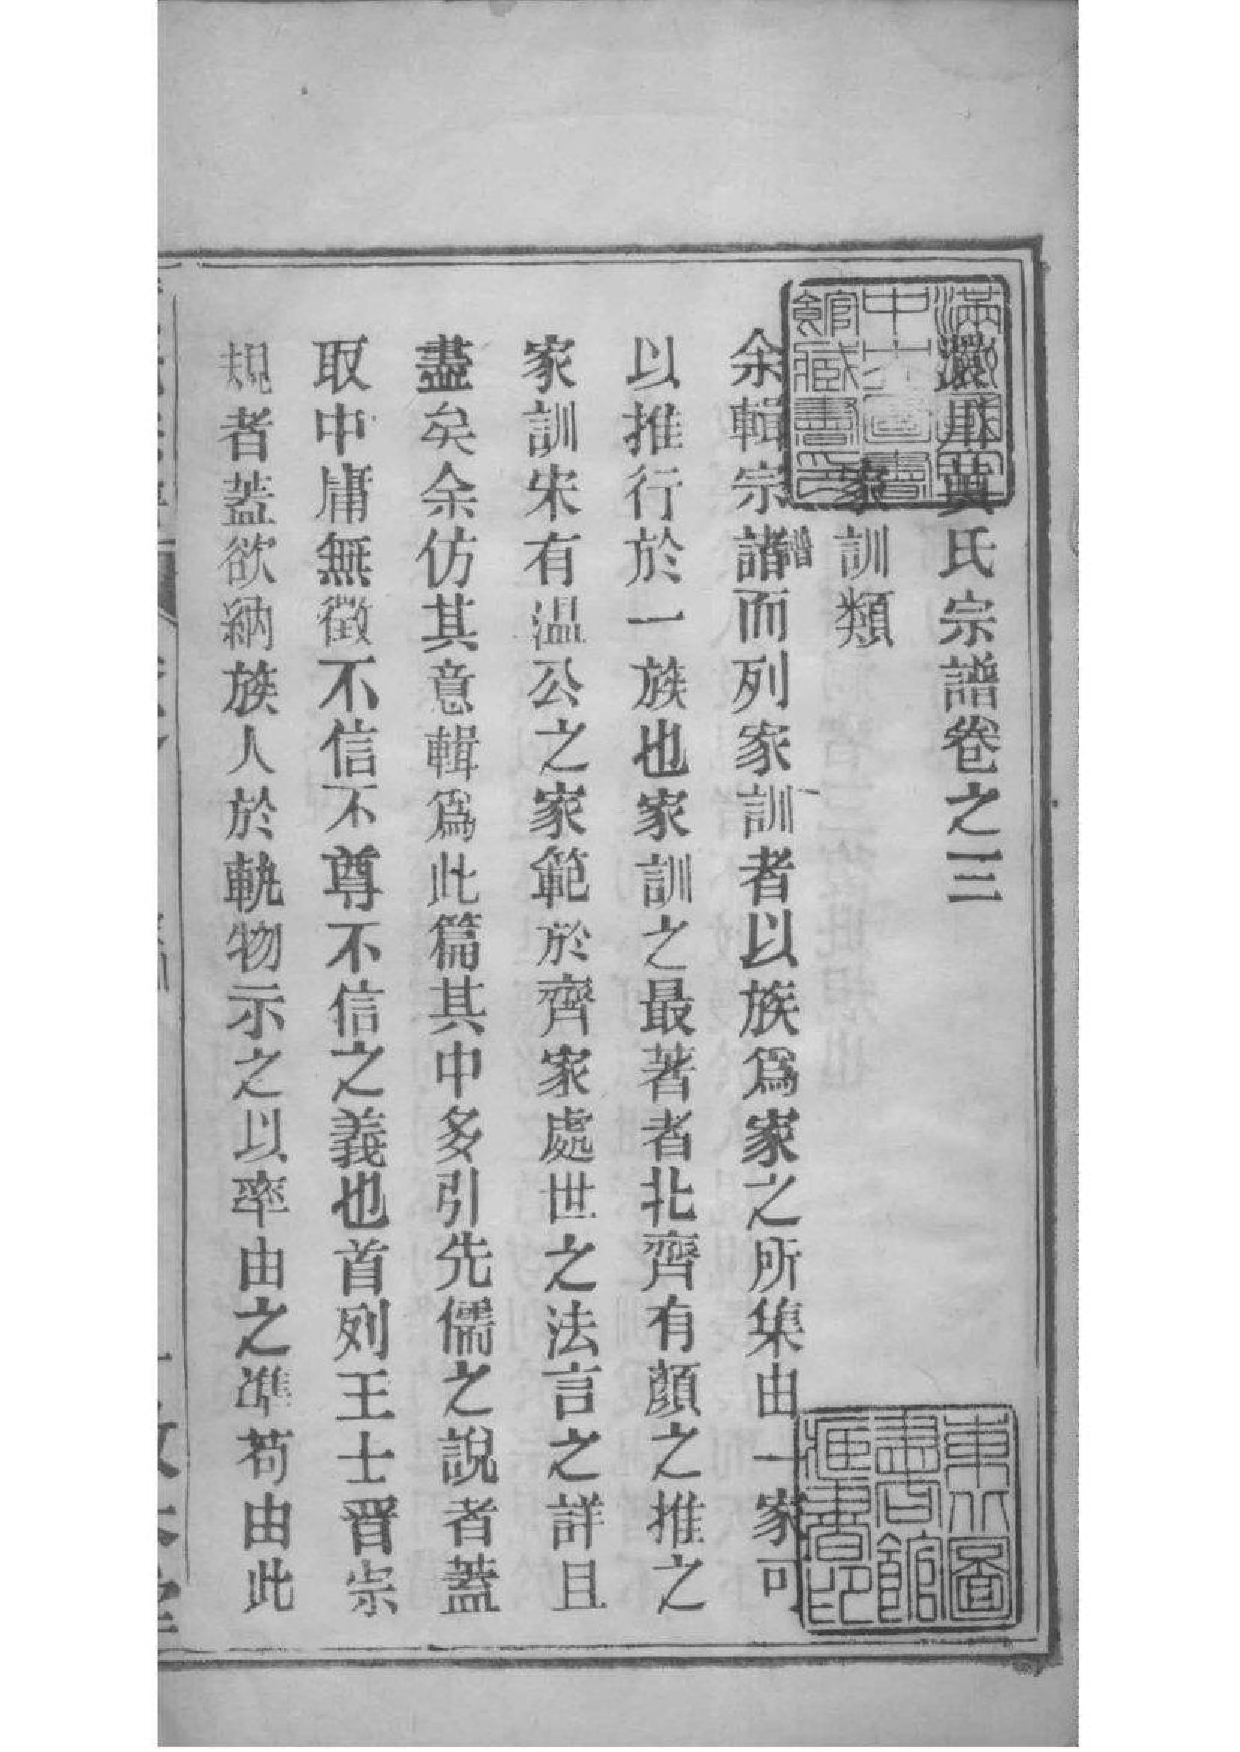 川冀氏宗譜卷之三
家訓類
余輯宗譜而列家訓者以族爲家之所集由一家可
以推行於一族也家訓之最著者北齊有顏之推之
家訓宋有温公之家範於齊家處世之法言之詳且
盡矣余仿其意輯爲此篇其中多引先儒之說者蓋
取中庸無徵不信不尊不信之義也首列王士晋宗
規者蓋欲納族人於軌物示之以率由之準苟由此
東北圖
書館
藏書印